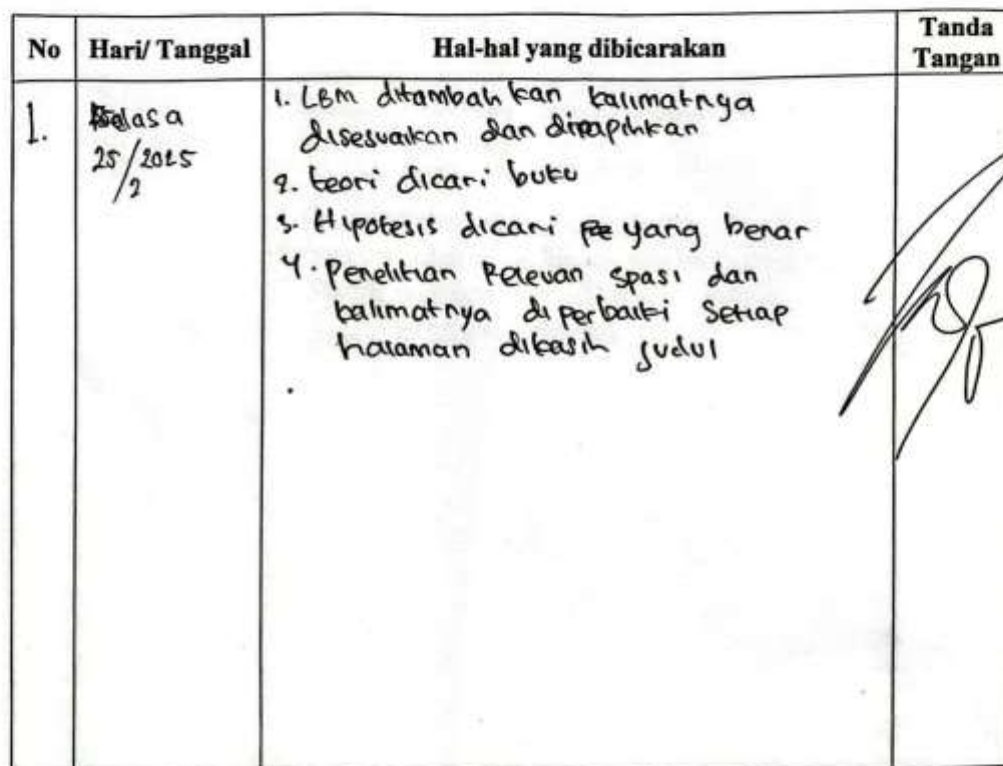 No Hari/ Tanggal Hal-hal yang dibicarakan Tanda Tangan
1. Selasa
25/2025
/2
1. LBM ditambahkan kalimatnya
disesuaikan dan dirapihkan
2. teori dicari buku
3. Hipotesis dicari yang benar
4. Penelitian Relevan spasi dan
kalimatnya diperbaiki Setiap
halaman dikasih judul